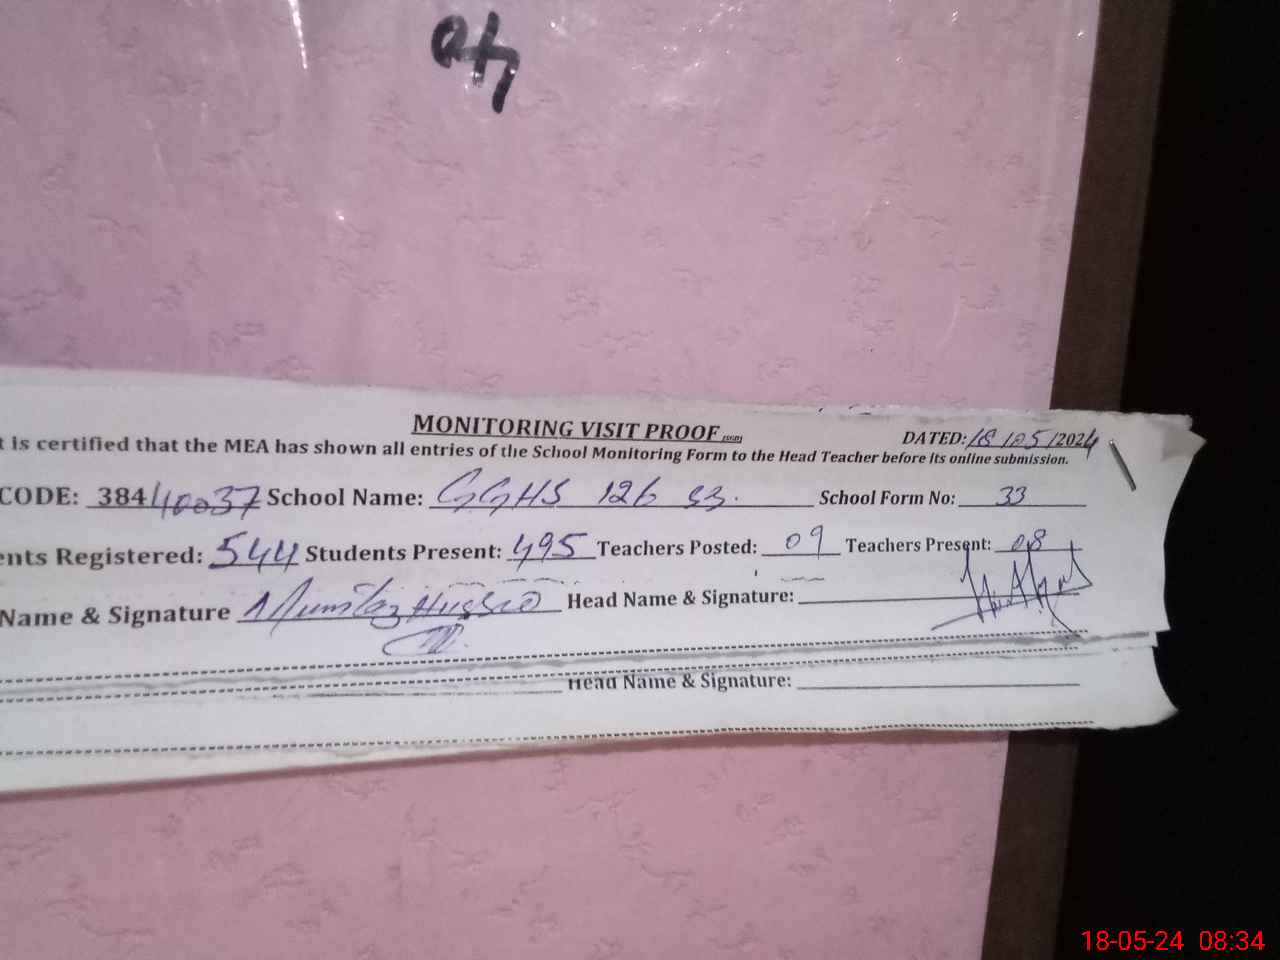 MONITORING VISIT PROOF
DATED: 18/05/2024
t is certified that the MEA has shown all entries of the School Monitoring Form to the Head Teacher before its online submission.
CODE: 38440037 School Name: GGHS 126 SB. School Form No: 33
ents Registered: 544 Students Present: 495 Teachers Posted: 09 Teachers Present: 08
Name & Signature Mumtaz Hussain Head Name & Signature:
Head Name & Signature:
18-05-24 08:34